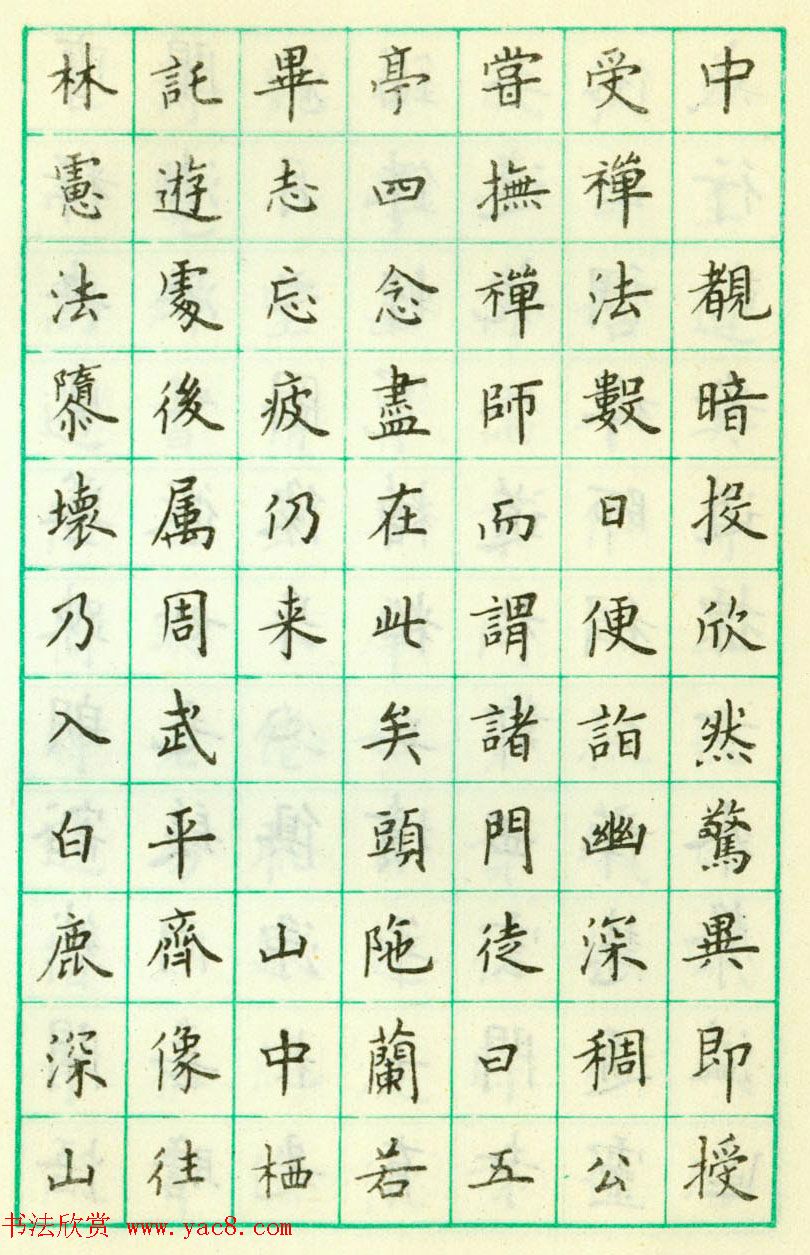 中 覩暗投欣然驚異即授
受禪法數日便詣幽深稠公
甞撫禪師而謂諸門徒曰五
亭四念盡在此矣頭陁蘭若
畢志忘疲仍来 山中栖
託遊處後属周武平齊像往
林慮法隳壞乃入白鹿深山
书法欣赏 www.yac8.com